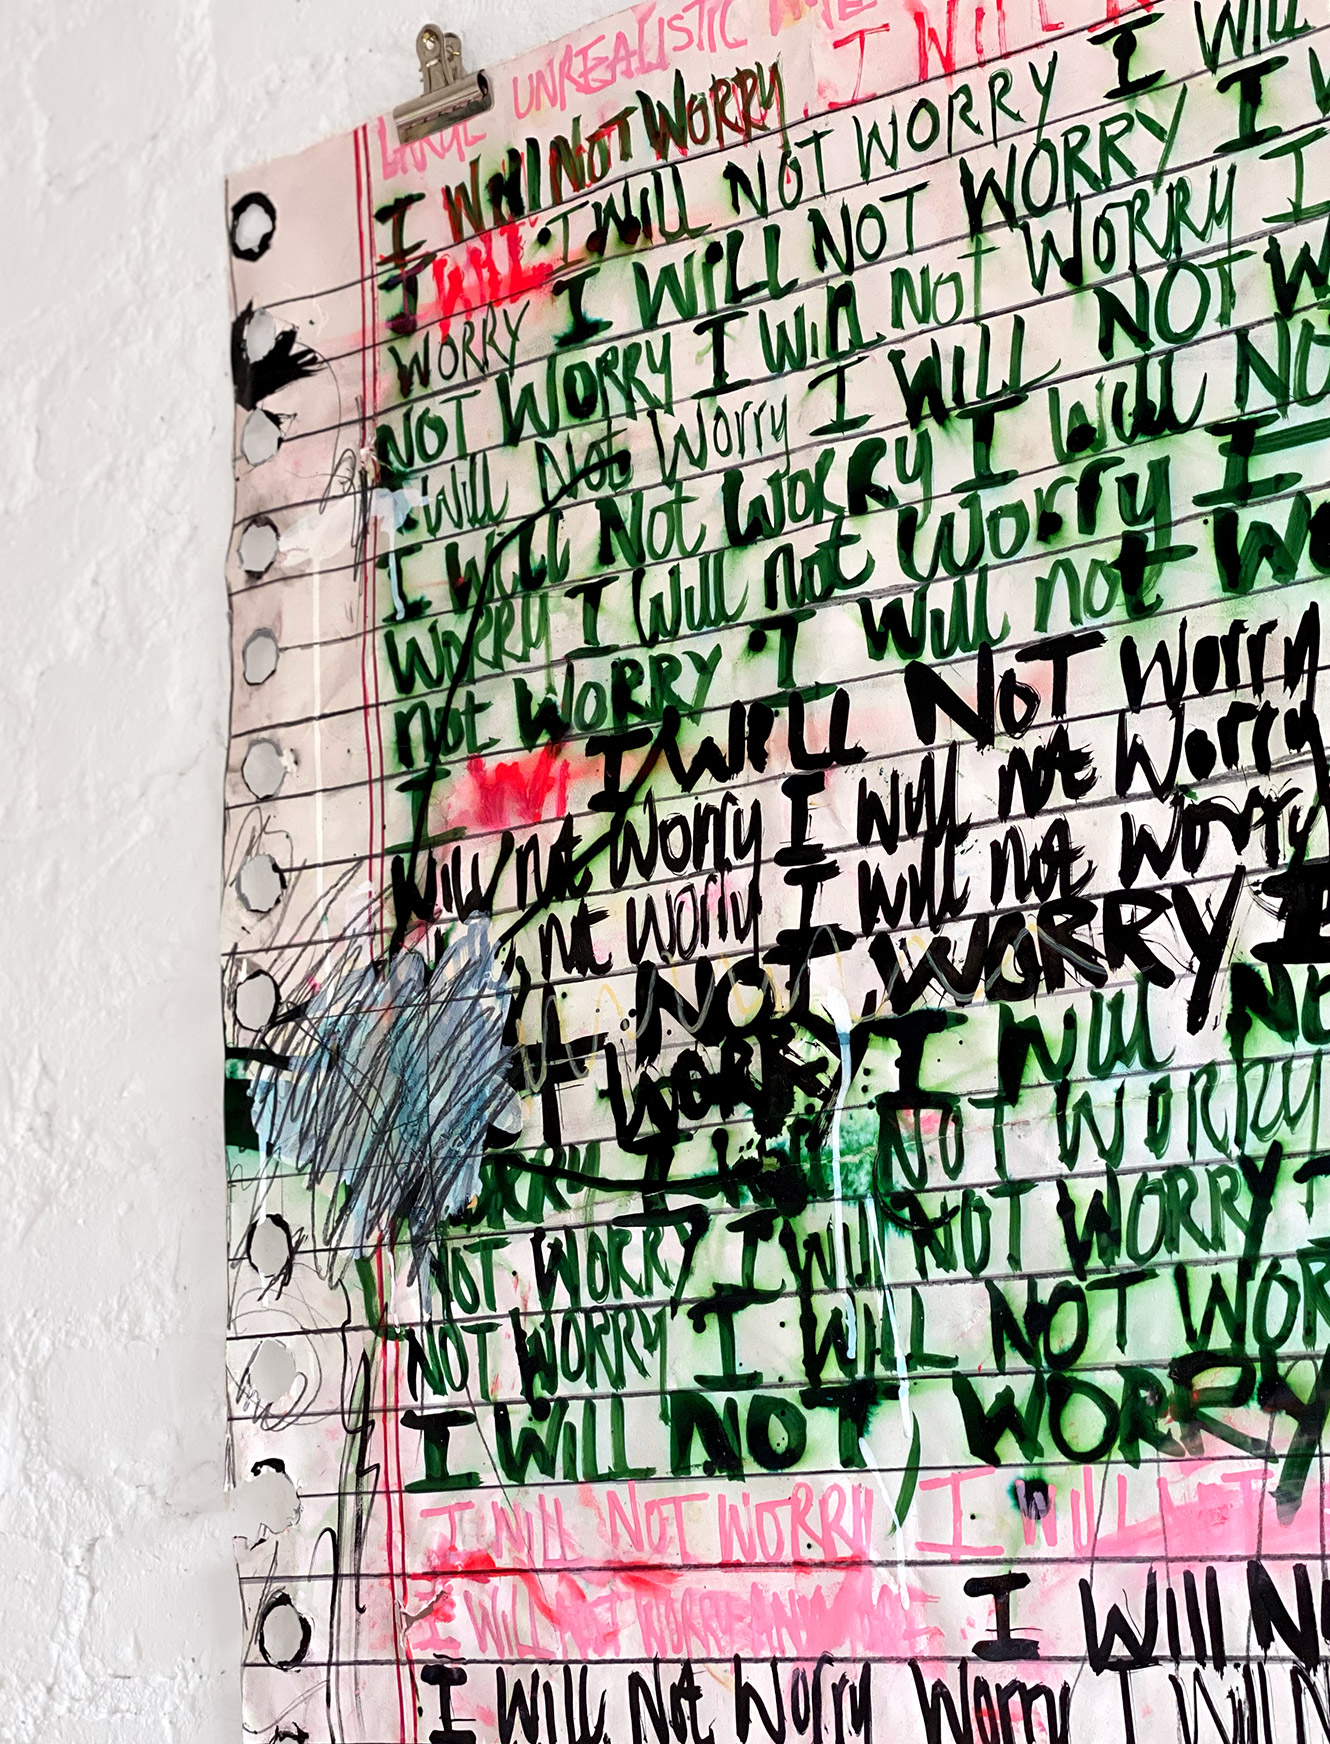 LARGE UNREALISTIC
I Will NOT WORRY I WILL
I WILL I WILL NOT WORRY I WILL
WORRY I WILL NOT WORRY I
NOT WORRY I Will NOT WORRY I
I Will Not Worry I WILL NOT
I WILL Not WORRY I Will NO
Worry I Will not Worry I
not WORRY I Will not
I I WILL NOT Worry
Will not Worry I will not Worry
not worry I will not worry
NOT WORRY I
I WORRY I Will NO
WORRY I Will NOT WORRY
NOT WORRY I WILL NOT WORRY I
NOT WORRY I WILL NOT WOR
I WILL NOT WORRY
I WILL NOT WORRY I WILL
I WILL NOT WORRY I WILL N
I WILL Not Worry Worry I Will N